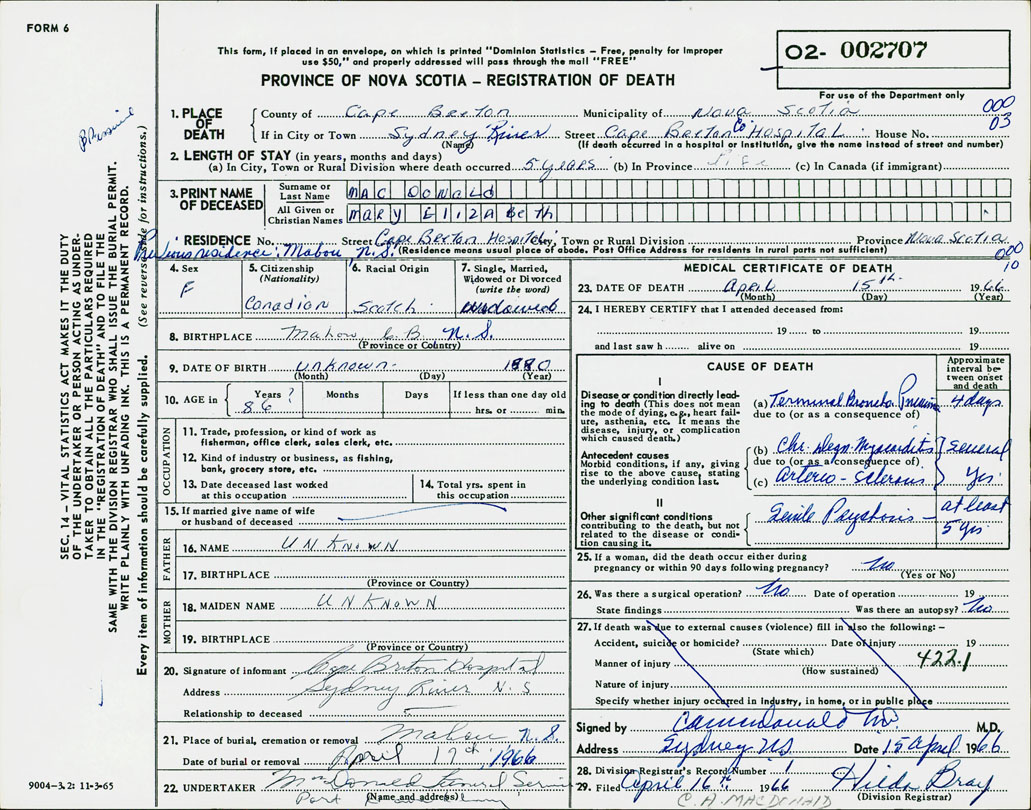 FORM 6
This form, if placed in an envelope, on which is printed "Dominion Statistics – Free, penalty for improper
use $50," and properly addressed will pass through the mail "FREE"
PROVINCE OF NOVA SCOTIA – REGISTRATION OF DEATH
O2- 002707
For use of the Department only
000
03
1. PLACE OF DEATH
County of Cape Breton Municipality of Nova Scotia
If in City or Town Sydney River Street Cape Breton Co Hospital House No.
(Name) (If death occurred in a hospital or institution, give the name instead of street and number)
2. LENGTH OF STAY (in years, months and days)
(a) In City, Town or Rural Division where death occurred 5 years (b) In Province Life (c) In Canada (if immigrant)
3. PRINT NAME OF DECEASED
Surname or Last Name MAC DONALD
All Given or Christian Names MARY ELIZABeth
RESIDENCE No. Street Cape Breton Hospital City, Town or Rural Division Province Nova Scotia
Previous residence: Mabou N.S. (Residence means usual place of abode. Post Office Address for residents in rural parts not sufficient)
000
10
4. Sex
F
5. Citizenship
(Nationality)
Canadian
6. Racial Origin
Scotch
7. Single, Married,
Widowed or Divorced
(write the word)
widowed
8. BIRTHPLACE Mabou C.B. N.S.
(Province or Country)
9. DATE OF BIRTH unknown 1880
(Month) (Day) (Year)
10. AGE in
Years ? 86
Months
Days
If less than one day old
hrs. or min.
OCCUPATION
11. Trade, profession, or kind of work as
fisherman, office clerk, sales clerk, etc.
12. Kind of industry or business, as fishing,
bank, grocery store, etc.
13. Date deceased last worked
at this occupation
14. Total yrs. spent in
this occupation
15. If married give name of wife
or husband of deceased
FATHER
16. NAME UNKNOWN
17. BIRTHPLACE
(Province or Country)
MOTHER
18. MAIDEN NAME UNKNOWN
19. BIRTHPLACE
(Province or Country)
20. Signature of informant Cape Breton Hospital
Address Sydney River N.S
Relationship to deceased
21. Place of burial, cremation or removal Mabou N.S.
Date of burial or removal April 17th, 1966
22. UNDERTAKER
(Name and address)
Port
MEDICAL CERTIFICATE OF DEATH
23. DATE OF DEATH April 15th 1966
(Month) (Day) (Year)
24. I HEREBY CERTIFY that I attended deceased from:
19 to 19
and last saw h alive on 19
CAUSE OF DEATH
Approximate
interval be-
tween onset
and death
I
Disease or condition directly lead-
ing to death (This does not mean
the mode of dying, e.g., heart fail-
ure, asthenia, etc. It means the
disease, injury, or complication
which caused death.)
(a) Terminal Broncho Pneumonia 4 days
due to (or as a consequence of)
Antecedent causes
Morbid conditions, if any, giving
rise to the above cause, stating
the underlying condition last.
(b) Chr. Degn Myocarditis
due to (or as a consequence of)
(c) Arterio-Sclerosis
Several
Yrs
II
Other significant conditions
contributing to the death, but not
related to the disease or condi-
tion causing it.
Senile Psychosis –
at least
5 yrs
25. If a woman, did the death occur either during
pregnancy or within 90 days following pregnancy? No
(Yes or No)
26. Was there a surgical operation? No Date of operation 19
State findings Was there an autopsy? No
27. If death was due to external causes (violence) fill in also the following: –
Accident, suicide or homicide? Date of injury 19
(State which)
Manner of injury 422.1
(How sustained)
Nature of injury
Specify whether injury occurred in industry, in home, or in public place
Signed by M.D.
Address Sydney NS Date 15 April 1966
28. Division Registrar's Record Number 1
29. Filed April 16th 1966 Hilda Bray
(Division Registrar)
C. A. MACDONALD
SEC. 14 – VITAL STATISTICS ACT MAKES IT THE DUTY
OF THE UNDERTAKER OR PERSON ACTING AS UNDER-
TAKER TO OBTAIN ALL THE PARTICULARS REQUIRED
IN THE "REGISTRATION OF DEATH" AND TO FILE THE
SAME WITH THE DIVISION REGISTRAR WHO SHALL ISSUE THE BURIAL PERMIT.
WRITE PLAINLY WITH UNFADING INK. THIS IS A PERMANENT RECORD.
Every item of information should be carefully supplied. (See reverse side for instructions.)
9004-3.2: 11-3-65